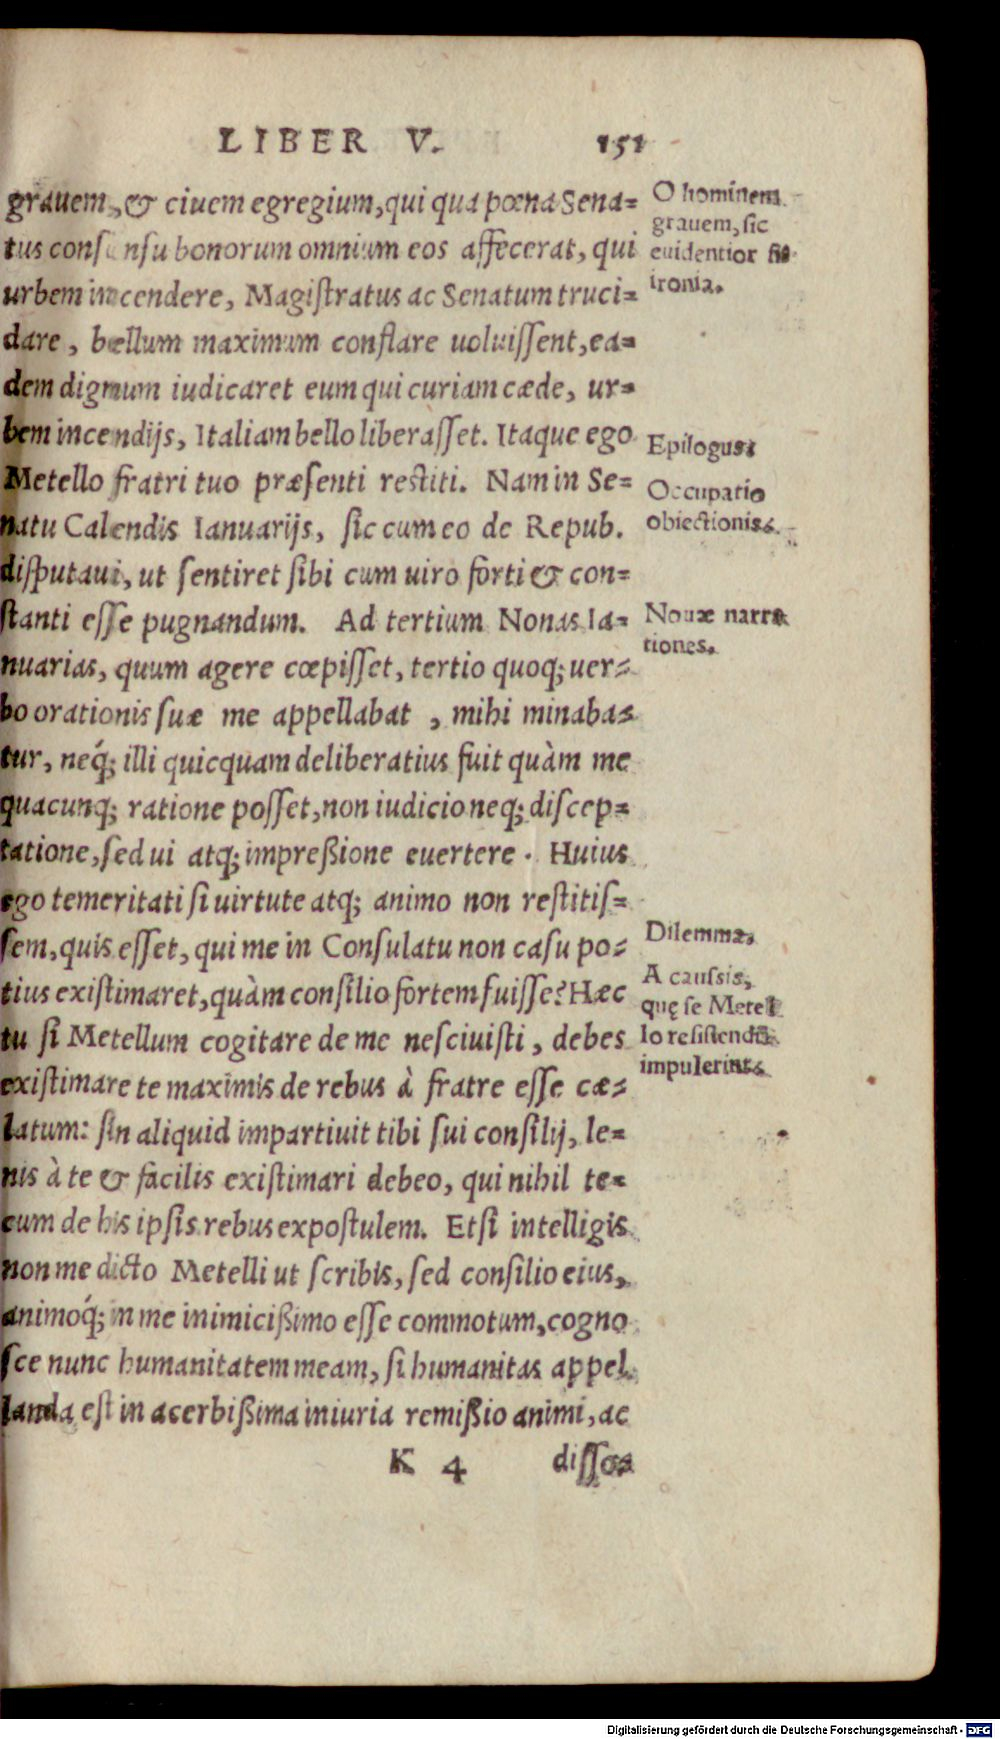 LIBER V. 151
grauem, & ciuem egregium, qui qua pœna Sena=
tus consensu bonorum omnium eos affecerat, qui
urbem incendere, Magistratus ac Senatum truci=
dare, bellum maximum conflare uoluissent, ea=
dem dignum iudicaret eum qui curiam cæde, ur=
bem incendijs, Italiam bello liberasset. Itaque ego
Metello fratri tuo præsenti restiti. Nam in Se=
natu Calendis Ianuarijs, sic cum eo de Repub.
disputaui, ut sentiret sibi cum uiro forti & con=
stanti esse pugnandum. Ad tertium Nonas Ia=
nuarias, quum agere cœpisset, tertio quoq; uer=
bo orationis suæ me appellabat, mihi minaba=
tur, neq́; illi quicquam deliberatius fuit quàm me
quacunq; ratione posset, non iudicio neq; discep=
tatione, sed ui atq; impreßione euertere. Huius
ego temeritati si uirtute atq; animo non restitis=
sem, quis esset, qui me in Consulatu non casu po=
tius existimaret, quàm consilio fortem fuisse? Hæc
tu si Metellum cogitare de me nesciuisti, debes
existimare te maximis de rebus à fratre esse cæ=
latum: sin aliquid impartiuit tibi sui consilij, le=
nis à te & facilis existimari debeo, qui nihil te=
cum de his ipsis rebus expostulem. Etsi intelligis
non me dicto Metelli ut scribis, sed consilio eius,
animoq́; in me inimicißimo esse commotum, cogno
sce nunc humanitatem meam, si humanitas appel
landa est in acerbißima iniuria remißio animi, ac
K 4 disso=
O hominem
grauem, sic
euidentior fit
ironia.
Epilogus.
Occupatio
obiectionis.
Nouæ narra
tiones.
Dilemma.
A caussis,
quę se Metel
lo resistendū
impulerint.
Digitalisierung gefördert durch die Deutsche Forschungsgemeinschaft - DFG